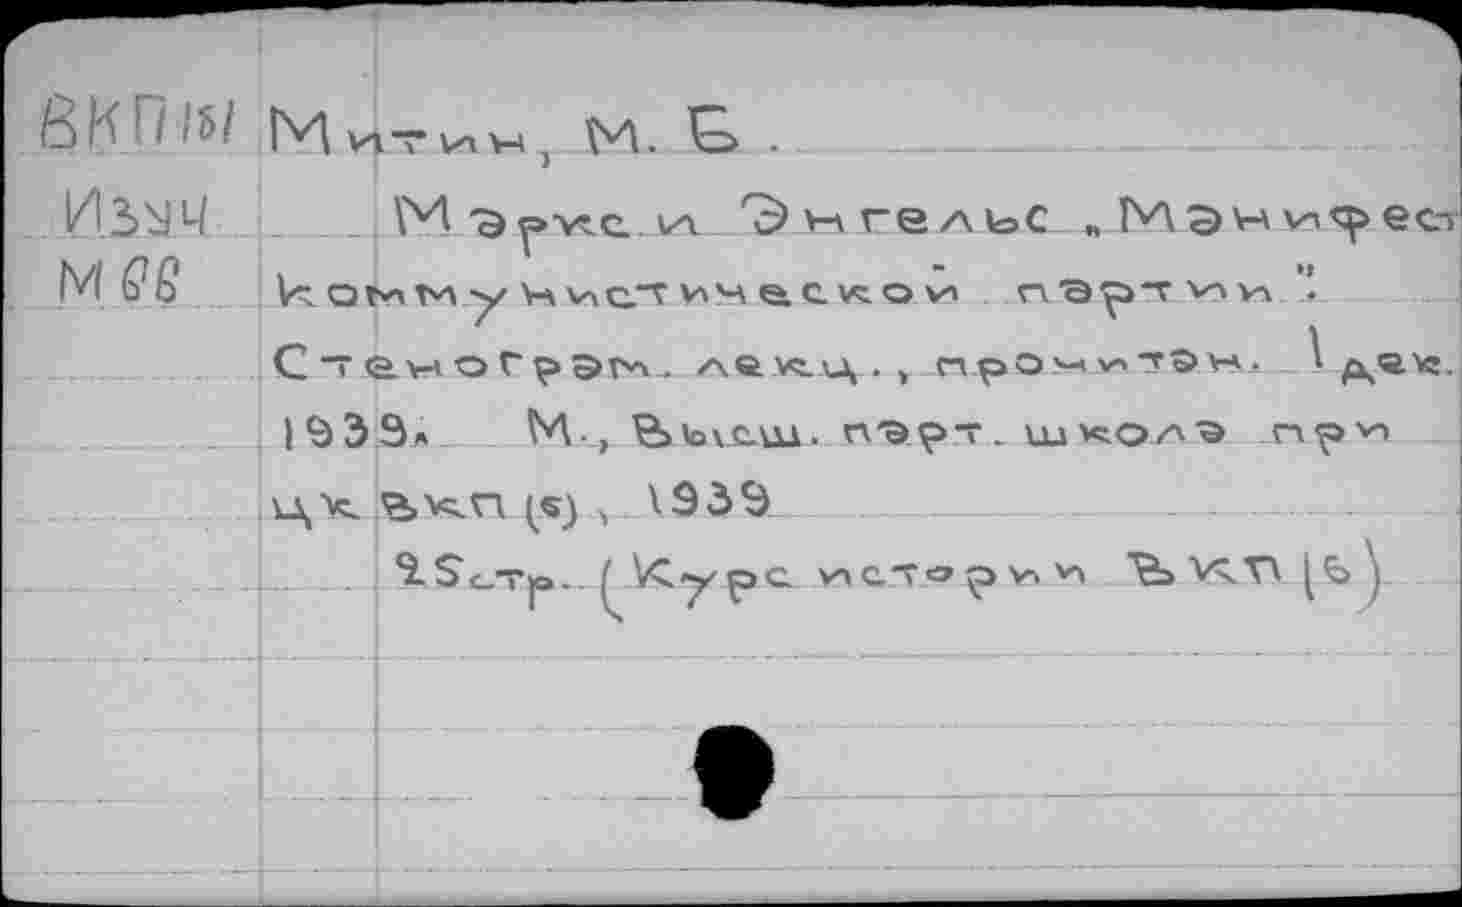 ВКП/б/ Митин, М. Б.
Изуч Маркс и Энгельс „Манифест
коммунистической партии".
Стенограм. лекц., прочитан. 1 дек.
1939г М., Высш. парт. школа при
цк вкп (б), 1939
25 стр. (Курс истории ВКП(б)